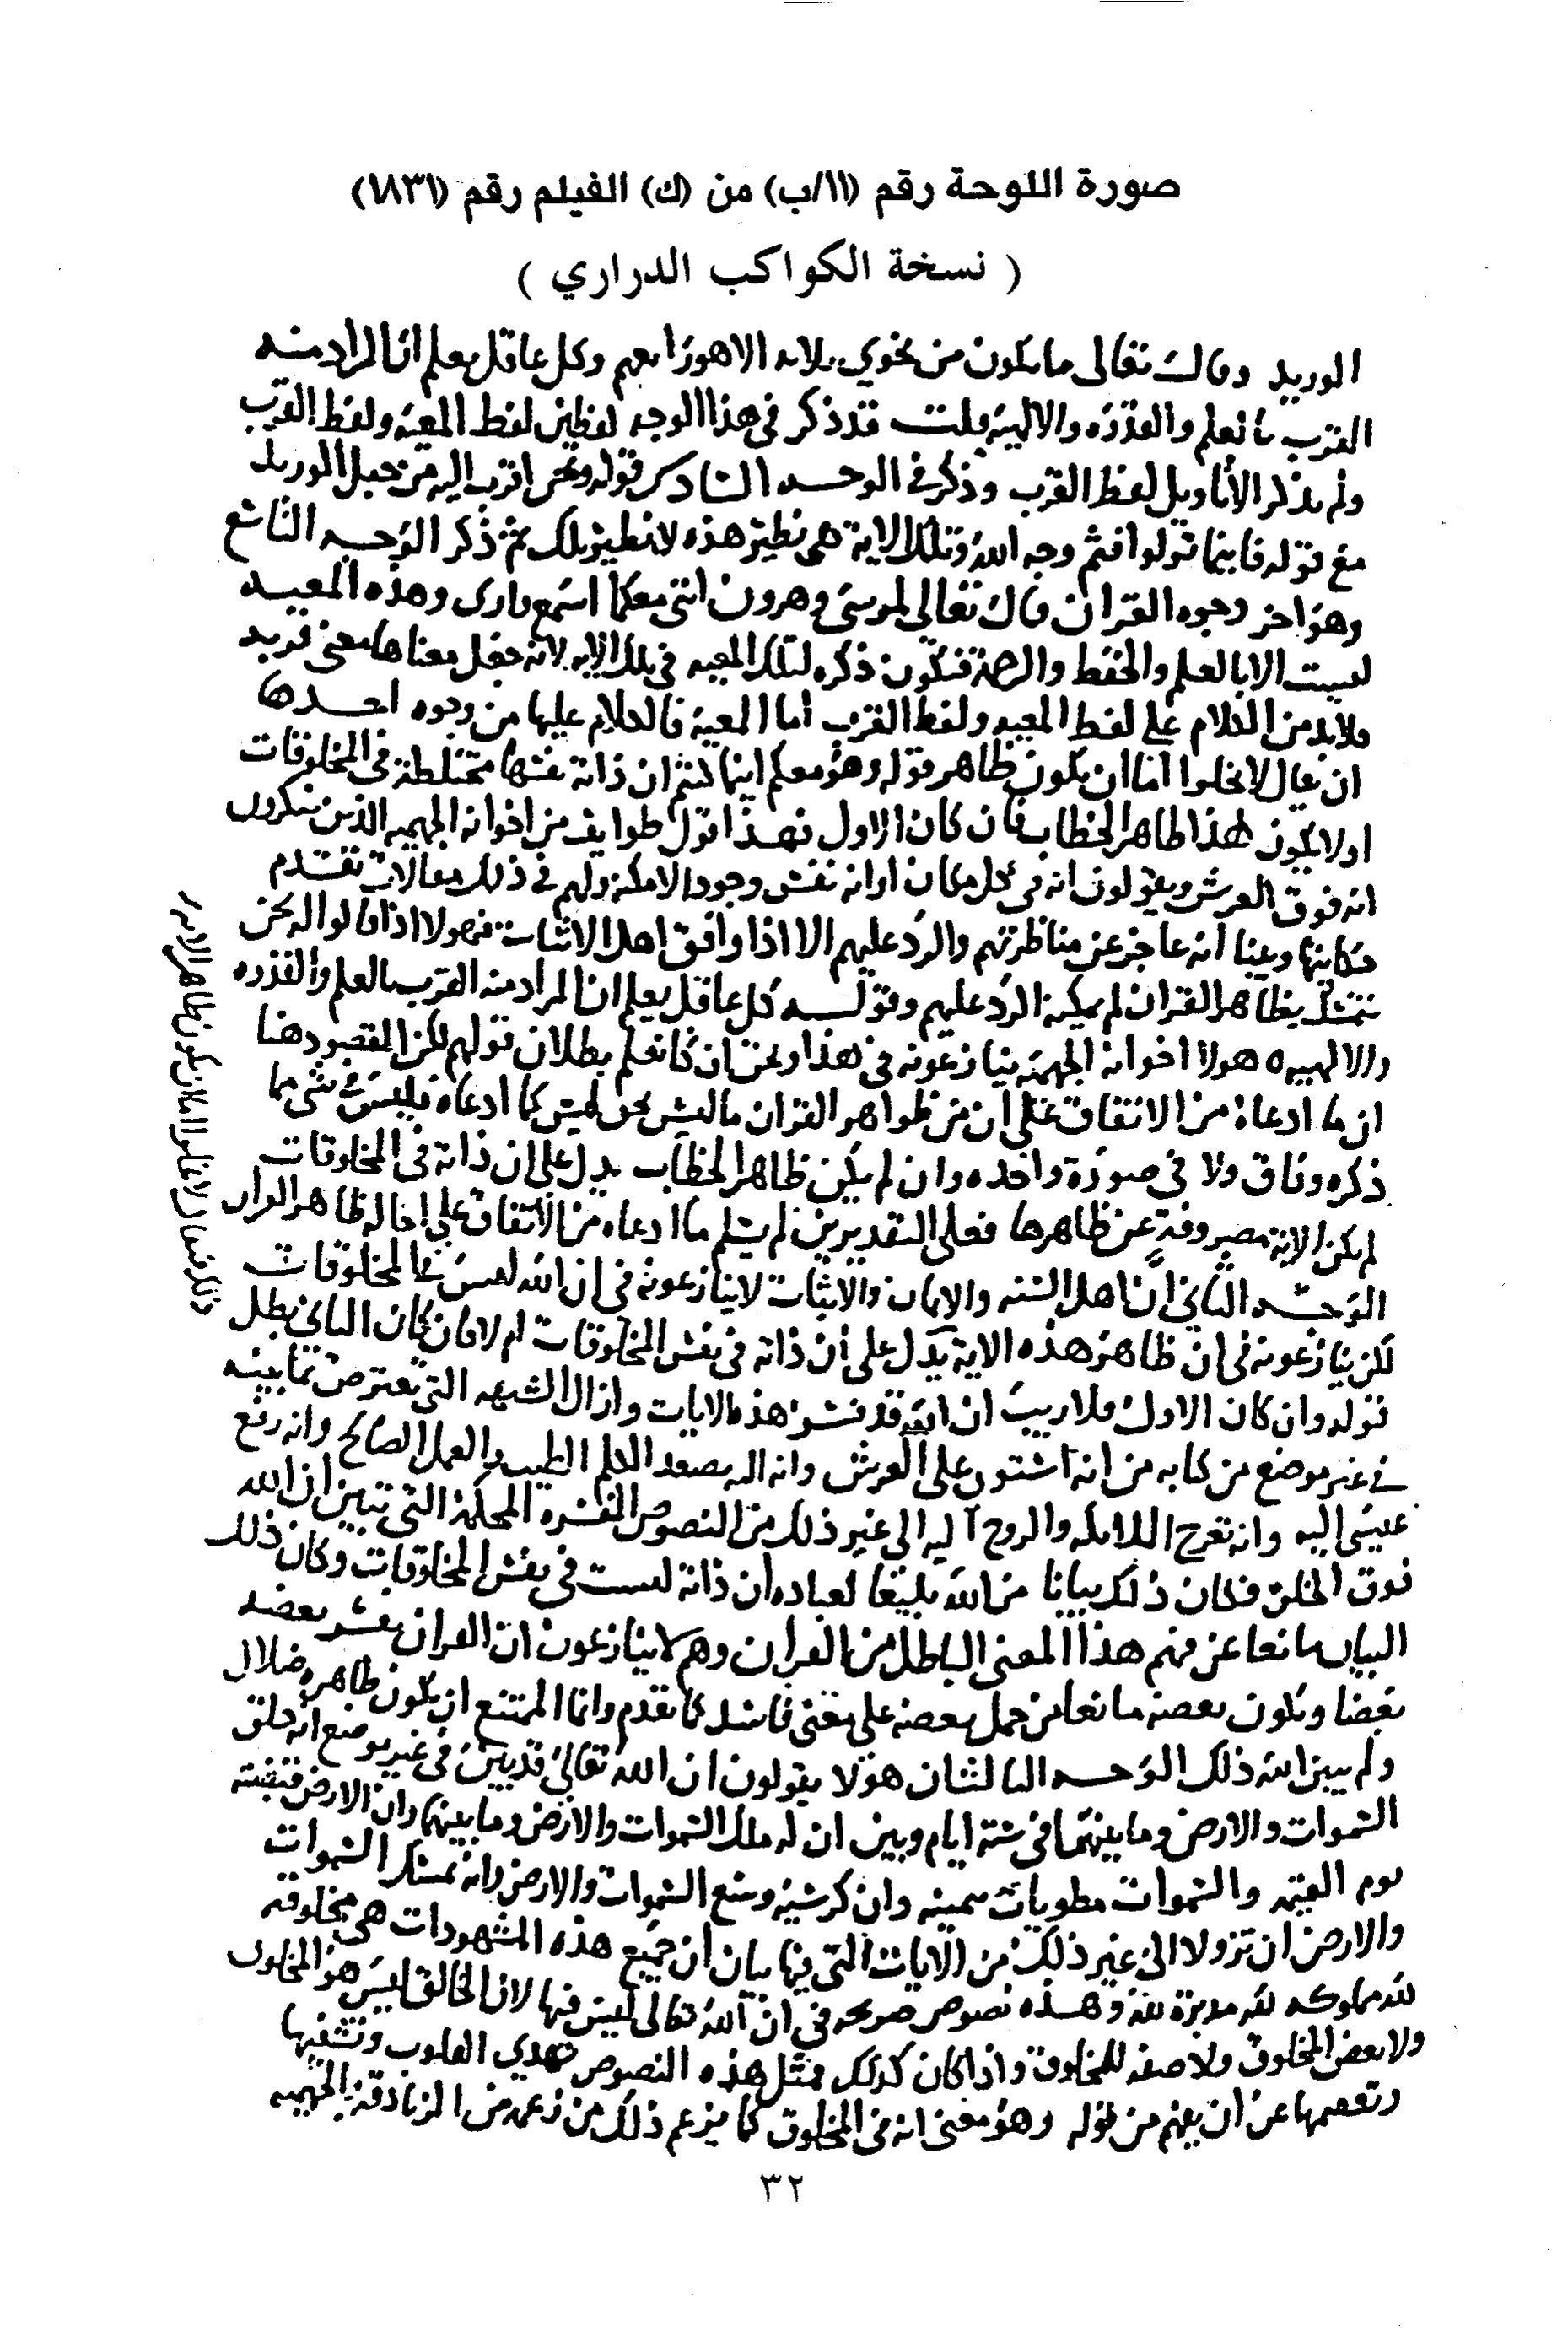 صورة اللوحة رقم (١١/ب) من (ك) الفيلم رقم (١٨٣١)
( نسخة الكواكب الدراري )
الوريد وقال تعالى ما يكون من نجوى ثلاثة الا هو رابعهم وكل عاقل يعلم ان المراد منه
القرب بالعلم والقدرة والالهية قلت قد ذكر في هذا الوجه لفظين لفظ المعية ولفظ القرب
ولم يذكر الا تاويل لفظ القرب وذكر في الوجه السادس قوله ونحن اقرب اليه من حبل الوريد
مع قوله فاينما تولوا فثم وجه الله وتلك الاية هي نظير هذه لا نظير تلك ثم ذكر الوجه التاسع
وهو اخر وجوه القران قال تعالى لموسى وهرون انني معكما اسمع وارى وهذه المعية
ليست الا بالعلم والحفظ والرحمة فتكون ذكره لتلك المعية في تلك الاية لانه جعل معناها معنى قريب
ولابد من الكلام على لفظ المعية ولفظ القرب اما المعية فالكلام عليها من وجوه احدها
ان يقال لا يخلوا اما ان يكون ظاهر قوله وهو معكم اينما كنتم ان ذاته نفسها مختلطة في المخلوقات
او لا يكون هذا ظاهر الخطاب فان كان الاول فهذا قول طوايف من اخوانه الجهمية الذين ينكرون
انه فوق العرش ويقولون انه في كل مكان او انه نفس وجود الامكنة ولهم في ذلك مقالات تقدم
حكايتها وبينا انه عاجز عن مناظرتهم والرد عليهم الا اذا وافق اهل الاثبات فهولا اذا قالوا له نحن
نتمسك بظاهر القران لم يمكنه الرد عليهم وقوله كل عاقل يعلم ان المراد منه القرب بالعلم والقدرة
والالهية هولا اخوانه الجهمية ينازعونه في هذا ونحن ان كنا نعلم بطلان قولهم لكن المقصود هنا
ان ما ادعاه من الاتفاق على ان من ظواهر القران ما ليس بحق ليس كما ادعاه فليس شي مما
ذكره وفاق ولا في صورة واحده وان لم يكن ظاهر الخطاب يدل على ان ذاته في المخلوقات
لم يكن الاية مصروفة عن ظاهرها فعلى التقديرين لم يسلم ما ادعاه من الاتفاق على احالة ظاهر القران
الوجه الثاني ان اهل السنه والايمان والاثبات لا ينازعونه في ان الله ليس في المخلوقات
لكن ينازعونه في ان ظاهر هذه الاية يدل على ان ذاته في نفس المخلوقات ام لا فان كان الثاني بطل
قوله وان كان الاول فلا ريب ان الله قد فسر هذه الايات وازال الشبهه التي تعترض بما بينه
في غير موضع من كتابه من انه استوى على العرش وانه اليه يصعد الكلم الطيب والعمل الصالح وانه رفع
عيسى اليه وانه تعرج الملايكه والروح اليه الى غير ذلك من النصوص المفسره المحكمة التي تبين ان الله
فوق الخلق فكان ذلك بيانا من الله بليغا لعباده ان ذاته ليست في نفس المخلوقات وكان ذلك
البيان مانعا عن فهم هذا المعنى الباطل من القران وهم لا ينازعون ان القران يفسر بعضه
بعضا ويكون بعضه مانعا من حمل بعضه على معنى فاسد كما تقدم وانما الممتنع ان يكون ظاهره ضلال
ولم يبين الله ذلك الوجه الثالث ان هؤلا يقولون ان الله تعالى قد بين في غير موضع انه خلق
السموات والارض وما بينهما في ستة ايام وبين ان له ملك السموات والارض وما بينهما وان الارض قبضته
يوم القيمه والسموات مطويات بيمينه وان كرسيه وسع السموات والارض وانه يمسك السموات
والارض ان تزولا الى غير ذلك من الايات التي فيها بيان ان جميع هذه المشهودات هي مخلوقة
لله مملوكه لله مدبرة لله وهذه نصوص صريحه في ان الله تعالى ليس فيها لان الخالق ليس هو المخلوق
ولا بعض المخلوق ولا صفه للمخلوق واذا كان كذلك فمثل هذه النصوص تهدي القلوب وتشفيها
وتعصمها عن ان يفهم من قوله وهو معنى انه في المخلوق كما يزعم ذلك من زعمه من الزنادقة الجهميه
٣٢